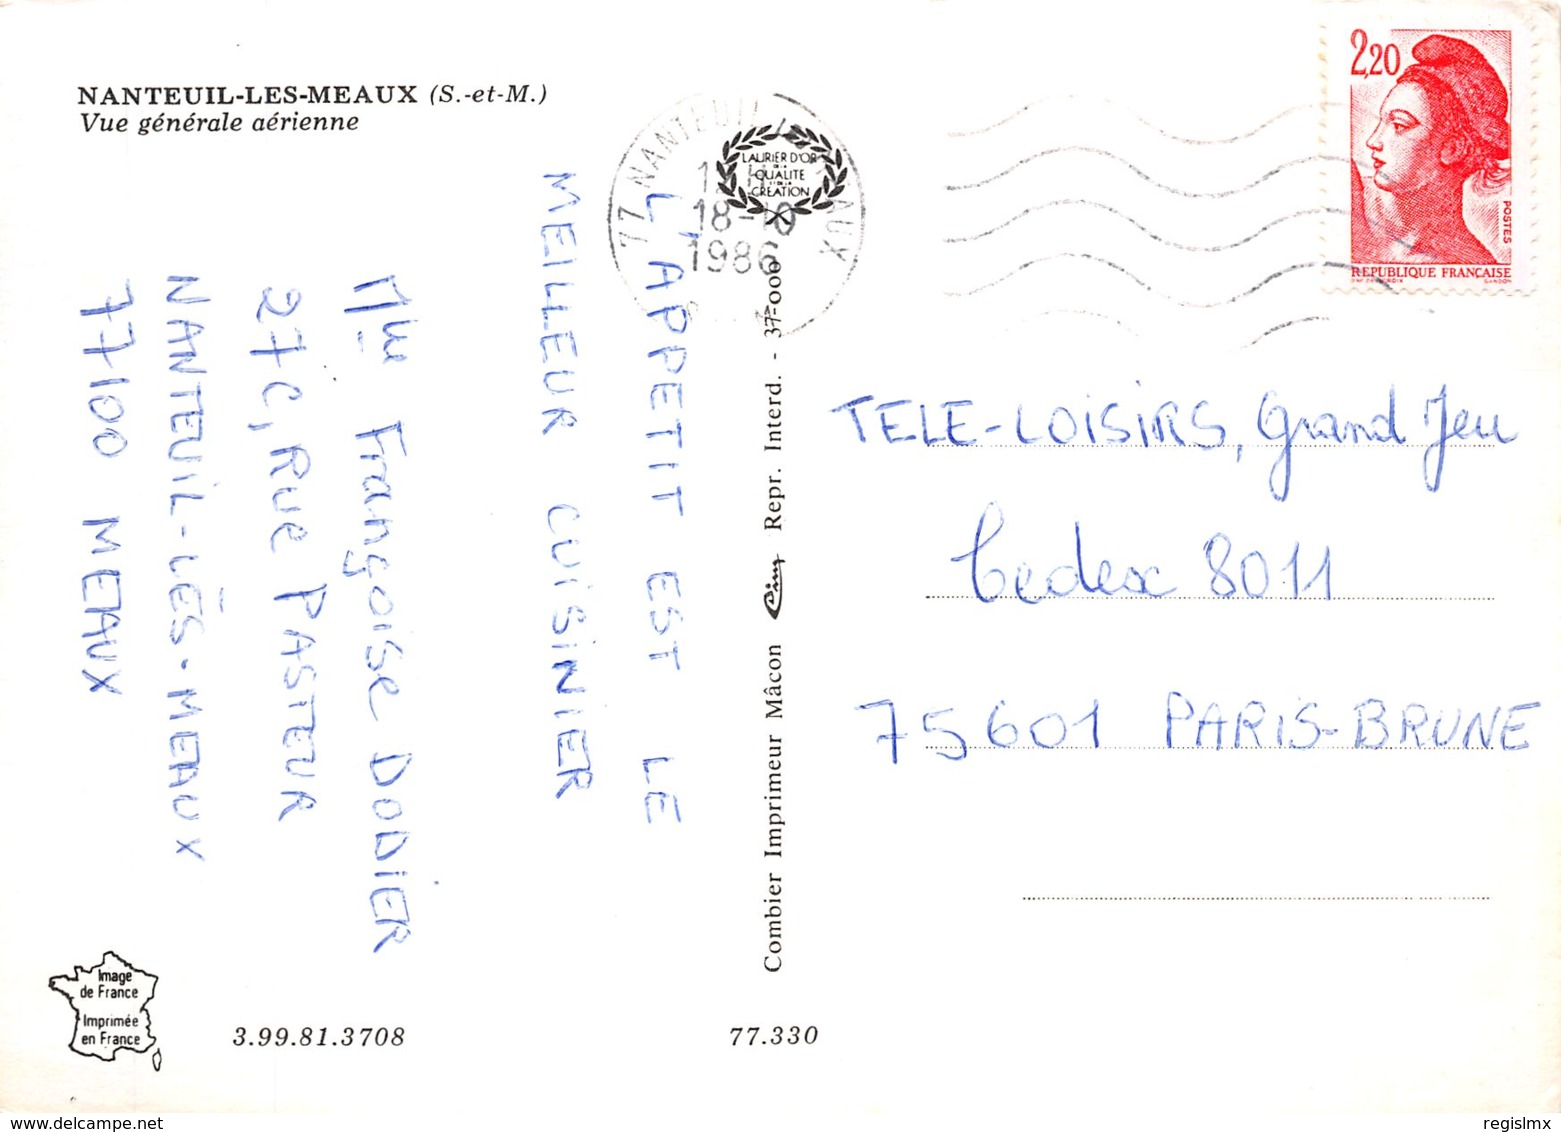 NANTEUIL-LES-MEAUX (S.-et-M.)
Vue générale aérienne
L'APPETIT EST LE
MEILLEUR CUISINIER
Mlle Françoise DODIER
27C, Rue PASTEUR
NANTEUIL-LÈS-MEAUX
77100 MEAUX
77 NANTEUIL MEAUX
18-10
1986
LAURIER D'OR
DE LA
QUALITE
ET DE LA
CREATION
Combier Imprimeur Mâcon Cim Repr. Interd. - 37-000
2,20
POSTES
REPUBLIQUE FRANÇAISE
GANDON
TELE-LOISIRS, Grand Jeu
Cedex 8011
75601 PARIS-BRUNE
Image
de France
Imprimée
en France
3.99.81.3708
77.330
www.delcampe.net
regislmx